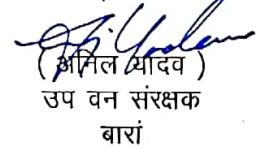 ( अनिल यादव )
उप वन संरक्षक
बारां